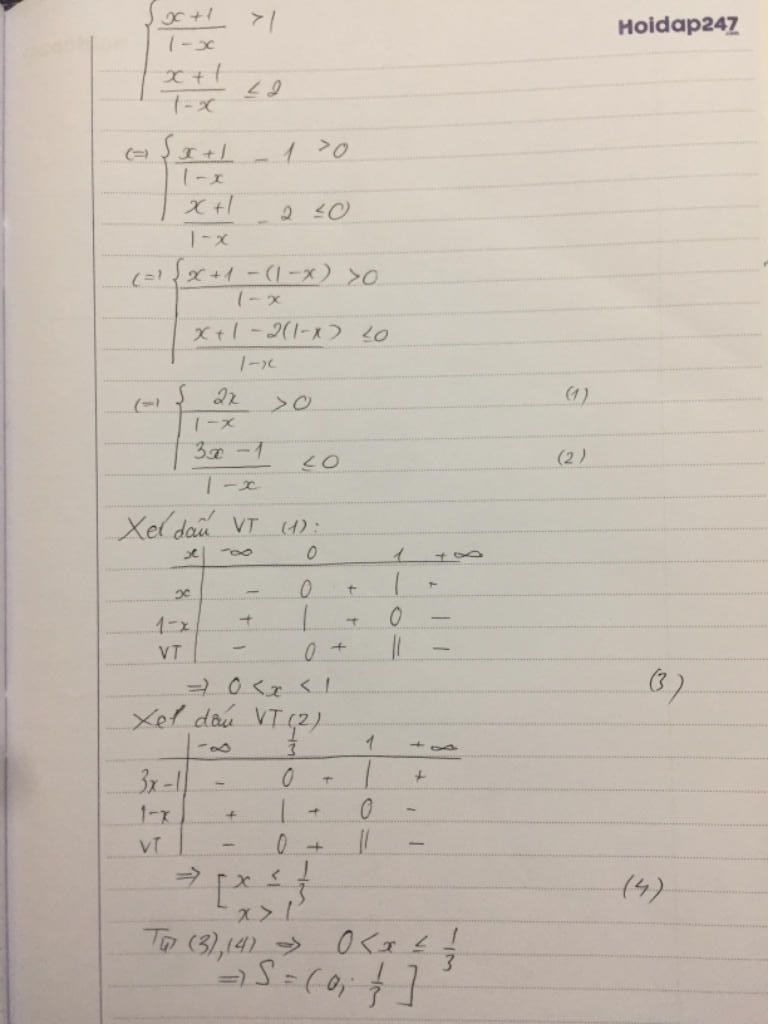 Hoidap247.com
{ (x+1)/(1-x) > 1
(x+1)/(1-x) ≤ 2
(=) { (x+1)/(1-x) - 1 > 0
(x+1)/(1-x) - 2 ≤ 0
(=) { (x+1-(1-x))/(1-x) > 0
(x+1-2(1-x))/(1-x) ≤ 0
(=) { 2x/(1-x) > 0 (1)
(3x-1)/(1-x) ≤ 0 (2)
Xét dấu VT (1):
x | -∞ 0 1 +∞
x | - 0 + | +
1-x | + | + 0 -
VT | - 0 + || -
=> 0 < x < 1 (3)
Xét dấu VT (2)
| -∞ 1/3 1 +∞
3x-1 | - 0 + | +
1-x | + | + 0 -
VT | - 0 + || -
=> [ x ≤ 1/3
x > 1 (4)
Từ (3), (4) => 0 < x ≤ 1/3
=> S = (0; 1/3]